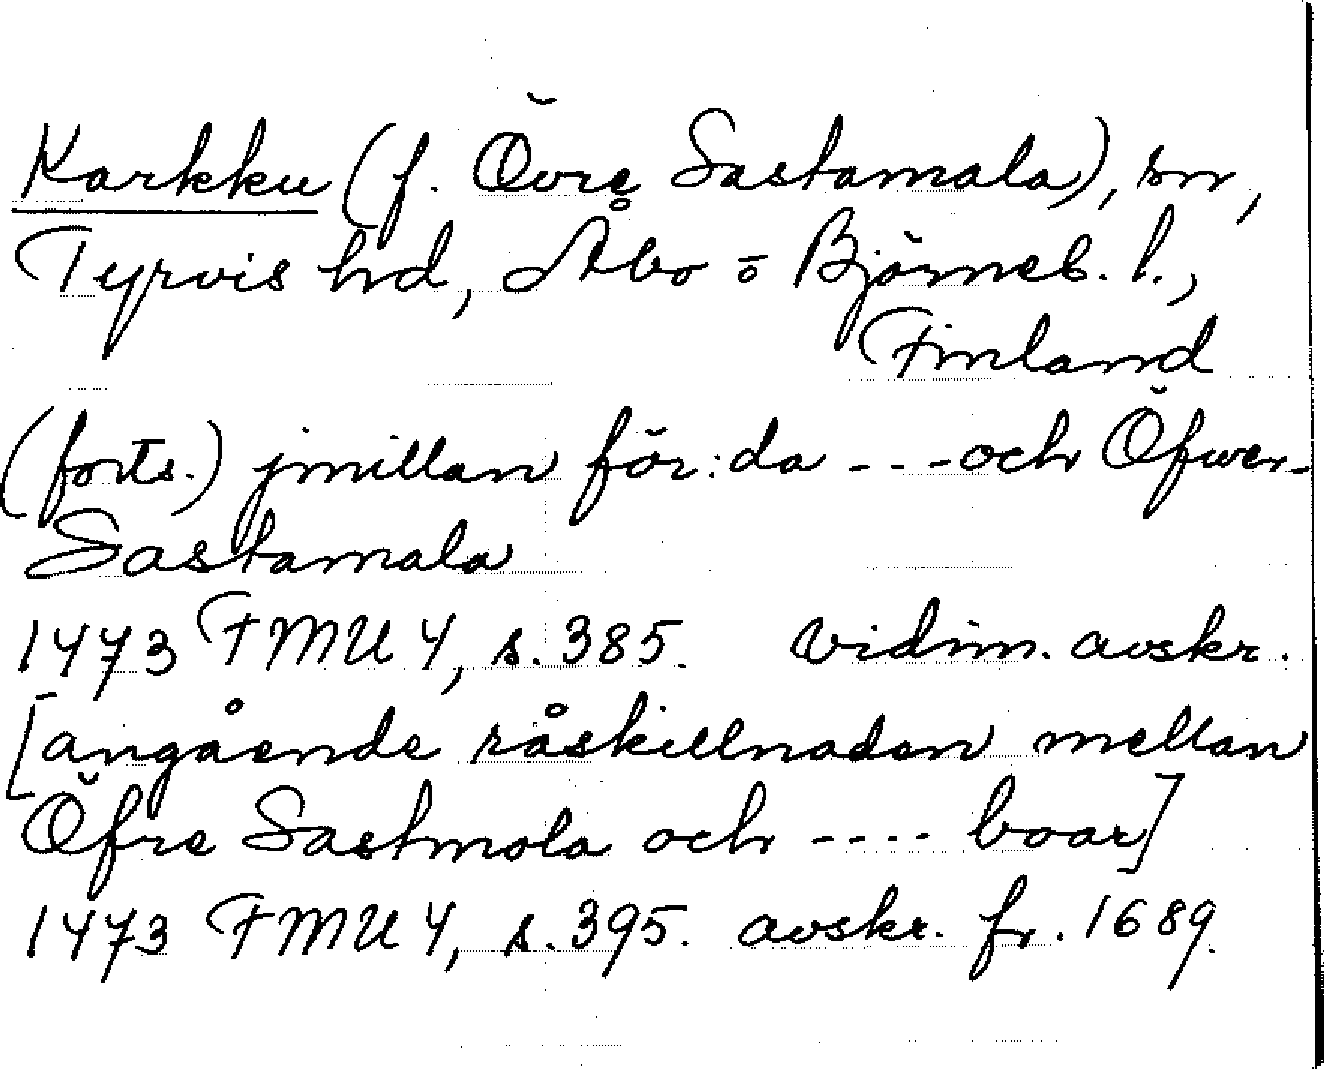 Karkku (f. Övre Sastamala), sn,
Tyrvis hd, Åbo o Björneb. l.,
Finland
(forts.) jmillan för:da - - - och Öfwer-
Sastamala
1473 FMU 4, s. 385. vidim. avskr.
[angående råskillnaden mellan
Öfre Sastmola och - - - - boar]
1473 FMU 4, s. 395. avskr. fr. 1689.